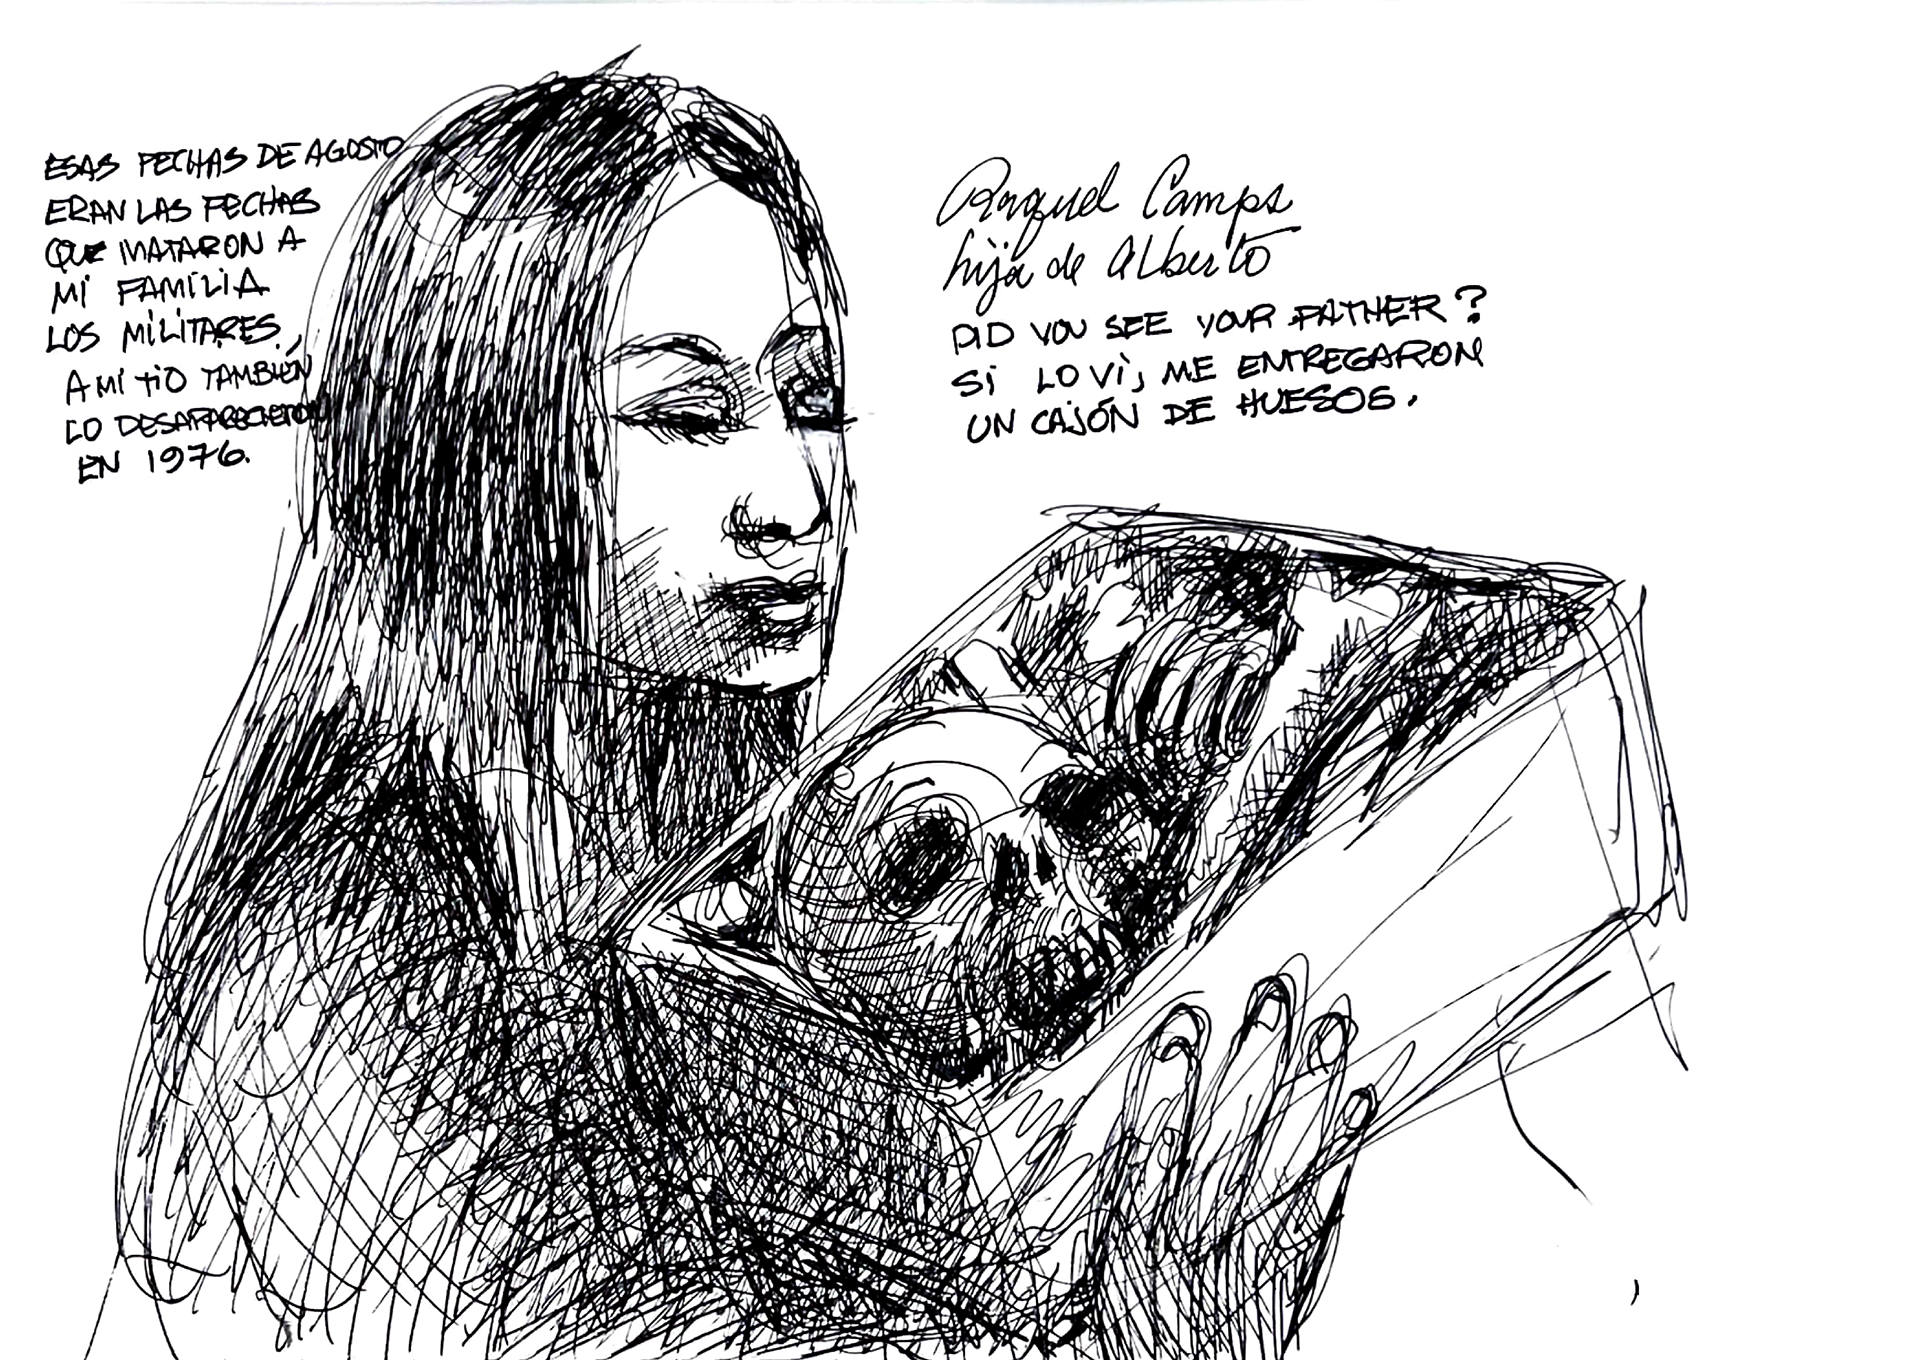 ESAS FECHAS DE AGOSTO
ERAN LAS FECHAS
QUE MATARON A
MI FAMILIA
LOS MILITARES,
A MI TIO TAMBIÉN
LO DESAPARECIERON
EN 1976.
Raquel Camps
hija de Alberto
DID YOU SEE YOUR FATHER?
SI LO VÌ, ME ENTREGARON
UN CAJÓN DE HUESOS.